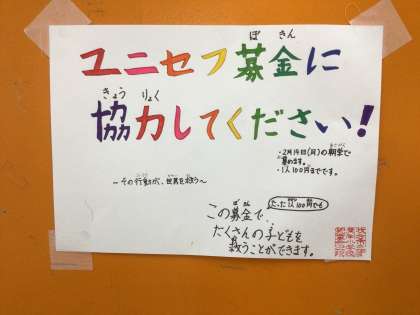 ぼ きん
ユニセフ募金に
きょう りょく
協力してください!
・2月14日(月)の朝学で
集めます。
・1人100円までです。
〜その行動が、世界を救う〜
たった1人100円でも
この募金で、
たくさんの子どもを
救うことができます。